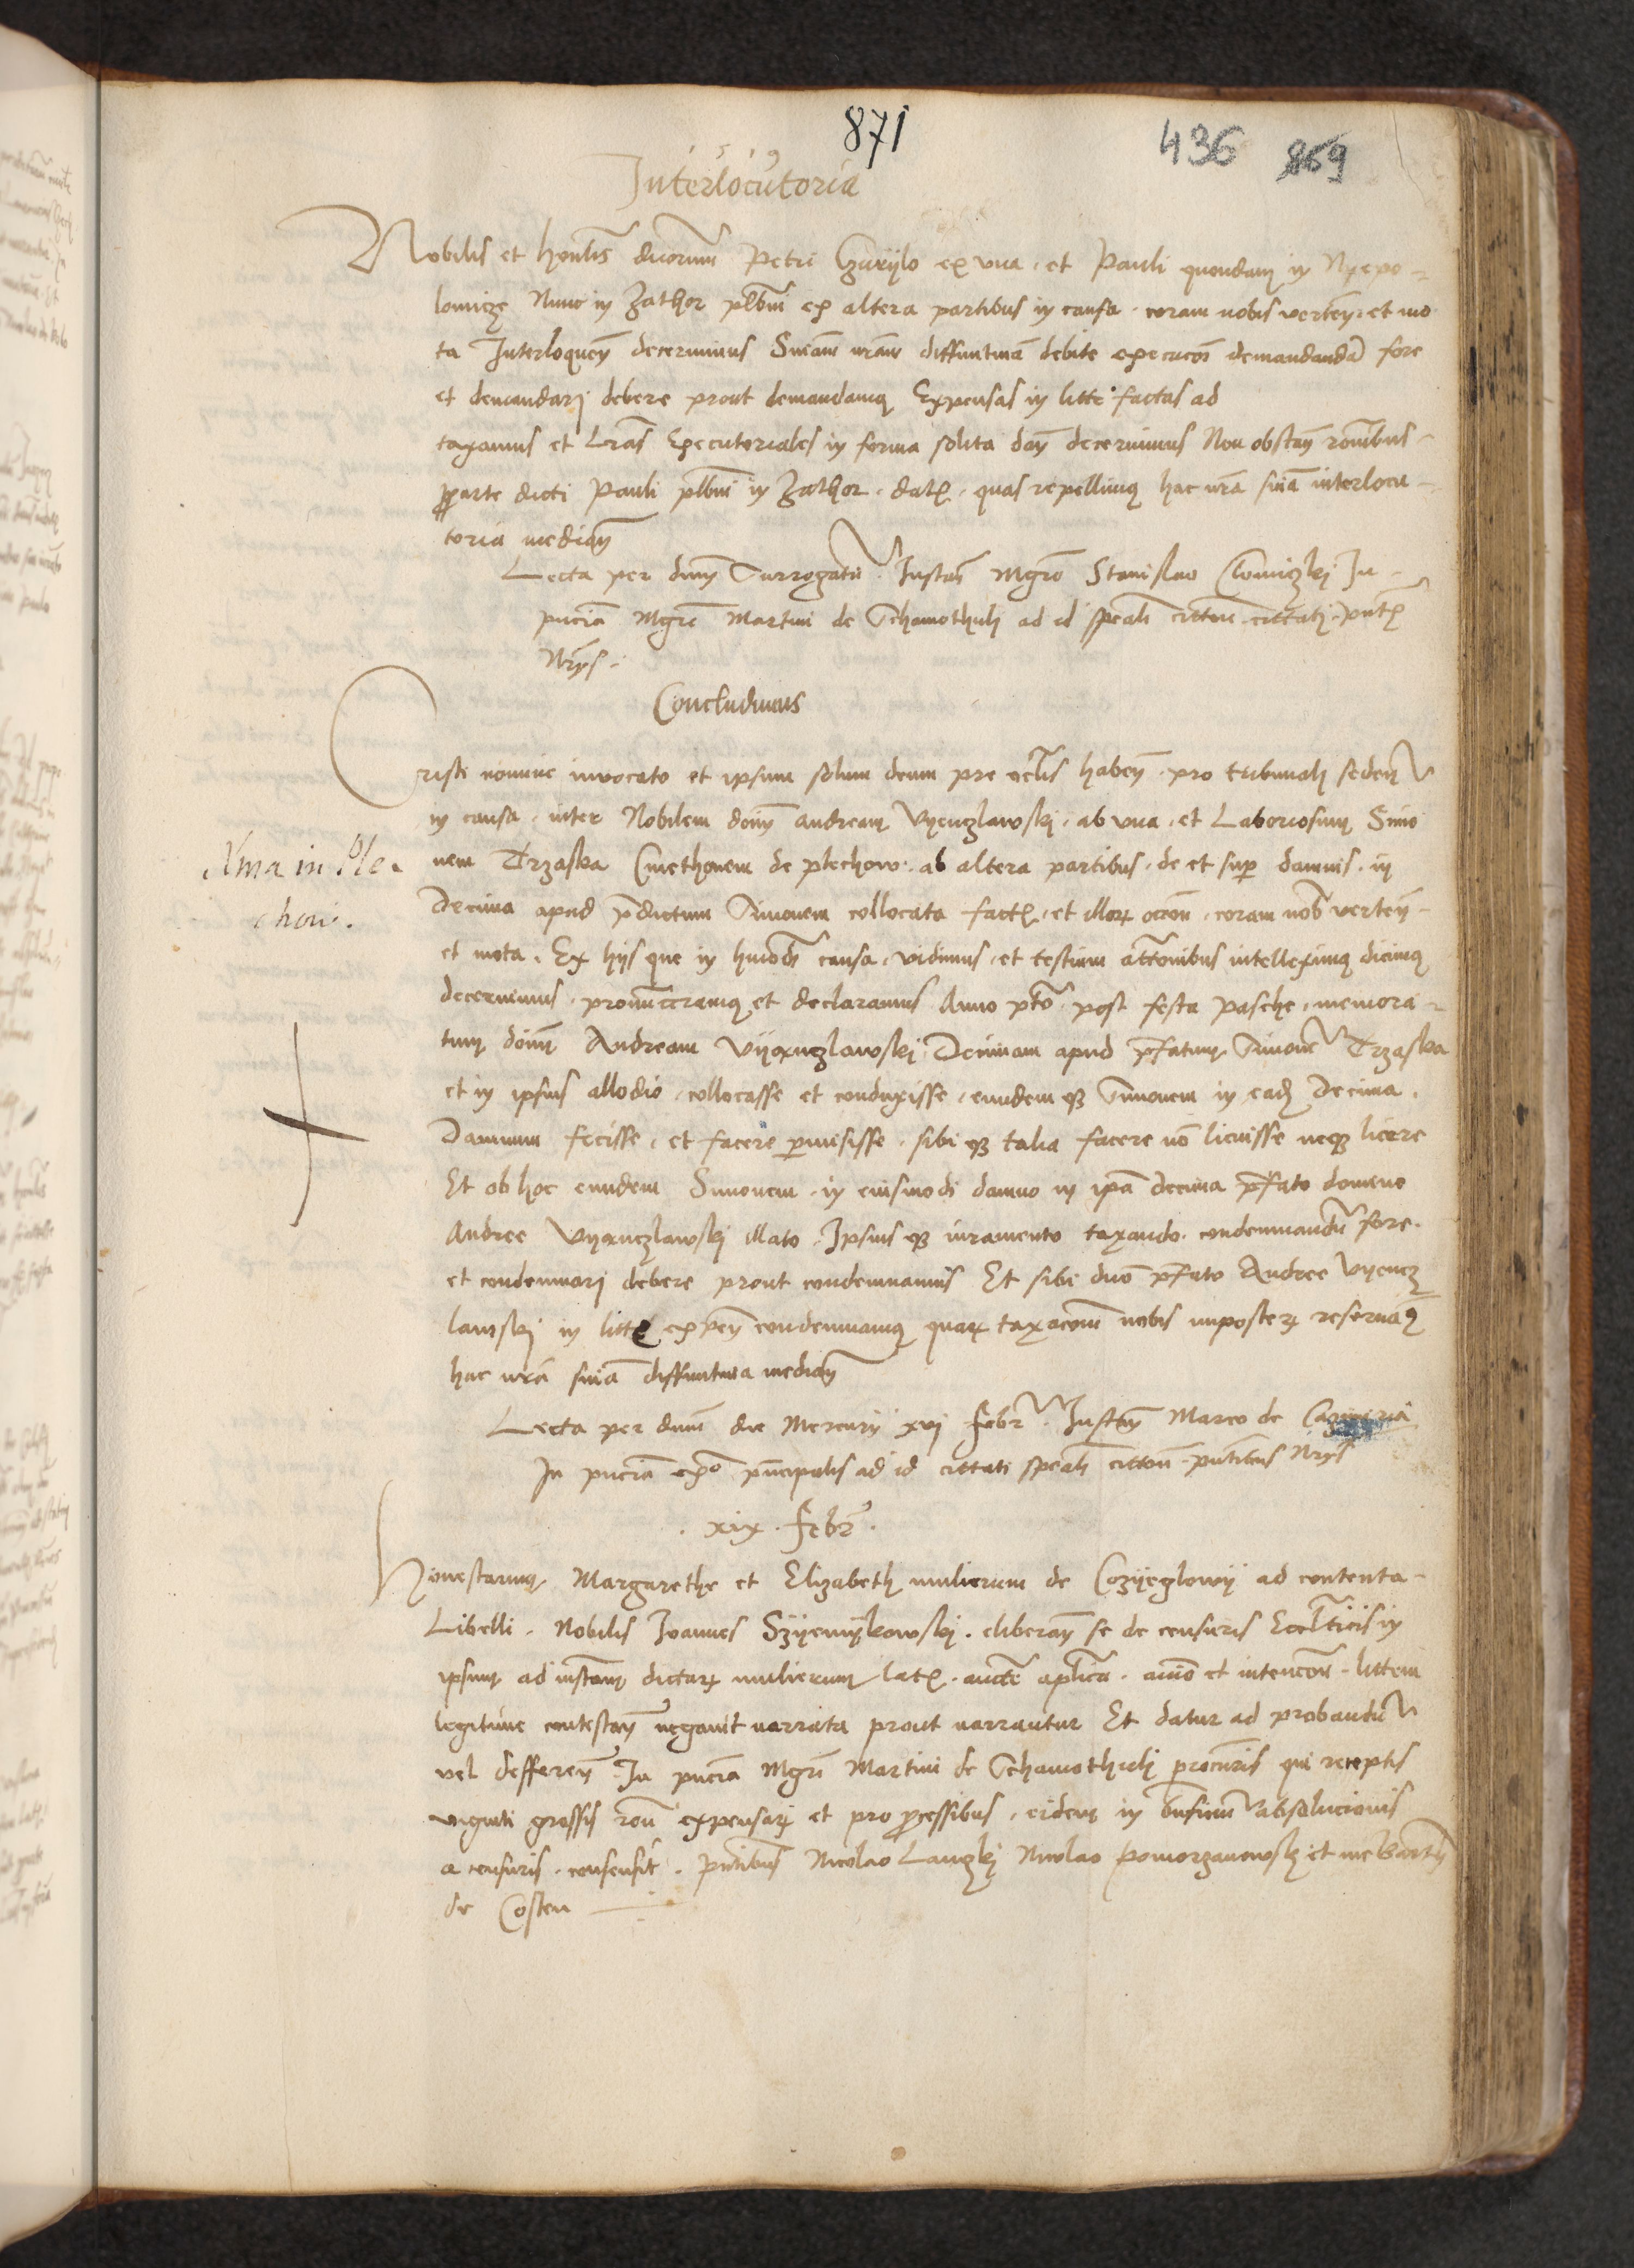 871
436 869
Interlocutoria
Nobilis et honlis duorum Petri Gzurylo ex vna et Pauli quondam in Nyepo-
lomicze Nunc in Zathor plbni ex altera partibus in causa coram nobis verten et mo
ta Interloquen decernimus Sniam nram diffinitiuam debite execucoi demandanda fore
et demandari debere prout demandamus Expensas in litte factas ad
taxamus et Lras Executoriales in forma solita dan decernimus Non obstan ronibus
parte dicti Pauli plbni in Zathor dat quas repellimus hac nra snia interlocu-
toria median
Lecta per dnm Surrogatu Instan Mgro Stanislao Slomiczki In
pncia Mgri Martini de Schamothuli ad id speali cittati pntt
Nrys
Concludimus
Cristi nomine invocato et ipsum solum deum pre oclis haben pro tribunali seden
in causa inter Nobilem domin Andream Vyenczlawski ab vna et Laboriosum Simo
nem Trzaska Cmethonem de plechow ab altera partibus de et sup damnis in
Xma in Ple
chow.
Decima apud pdictum Simonem collocata fact et illor occon coram nob verten
et mota Ex hys que in huiodi causa vidimus et testium attonibus intelleximus dicimus
decernimus pronuncciamus et declaramus Anno pto post festa pasche memora-
tum domi Andream Vyanczlawski Decimam apud pfatum Simone Trzaska
et in ipsius allodio collocasse et conduxisse eundem q Simonem in ead Decima
Damnum fecisse et facere pmisisse sibi q talia facere no licuisse neq licere
Et ob hoc eundem Simonem in eiusmodi damno in ipa decima pfato domino
Andree Vyanczlawski illato Ipsius q iuramento taxando condemnandu fore
et condemnari debere prout condemnamus Et sibi dno pfato Andree Vyencz
lawski in litte expen condemnamus quar taxacom nobis imposter reseruam9
hac nra snia diffinitiua median
Lecta per dnm die Mercurij xvj febr Instan Marco de
In pncia exo pncipalis ad id cittati speali citton pntibus Nrys
xix febr
Honestarum Margarethe et Elizabeth mulierum de Cozyeglowy ad contenta
Libelli Nobilis Joannes Szyemykowski eliberan se de censuris Ecclticis in
ipsum ad instan dictar mulierum lat aucte aplica animo et intencon littem
legitime contestan negauit narrata prout narrantur Et datur ad probandu
vel defferen In pncia Mgri Martini de Schamothuli procuris qui receptis
viginti grossis ron expensar et pro processibus eidem in bnficium absolucionis
a censuris consensit pntibus Nicolao Lanzkj Nicolao Pomorzanowski et me
de Costen